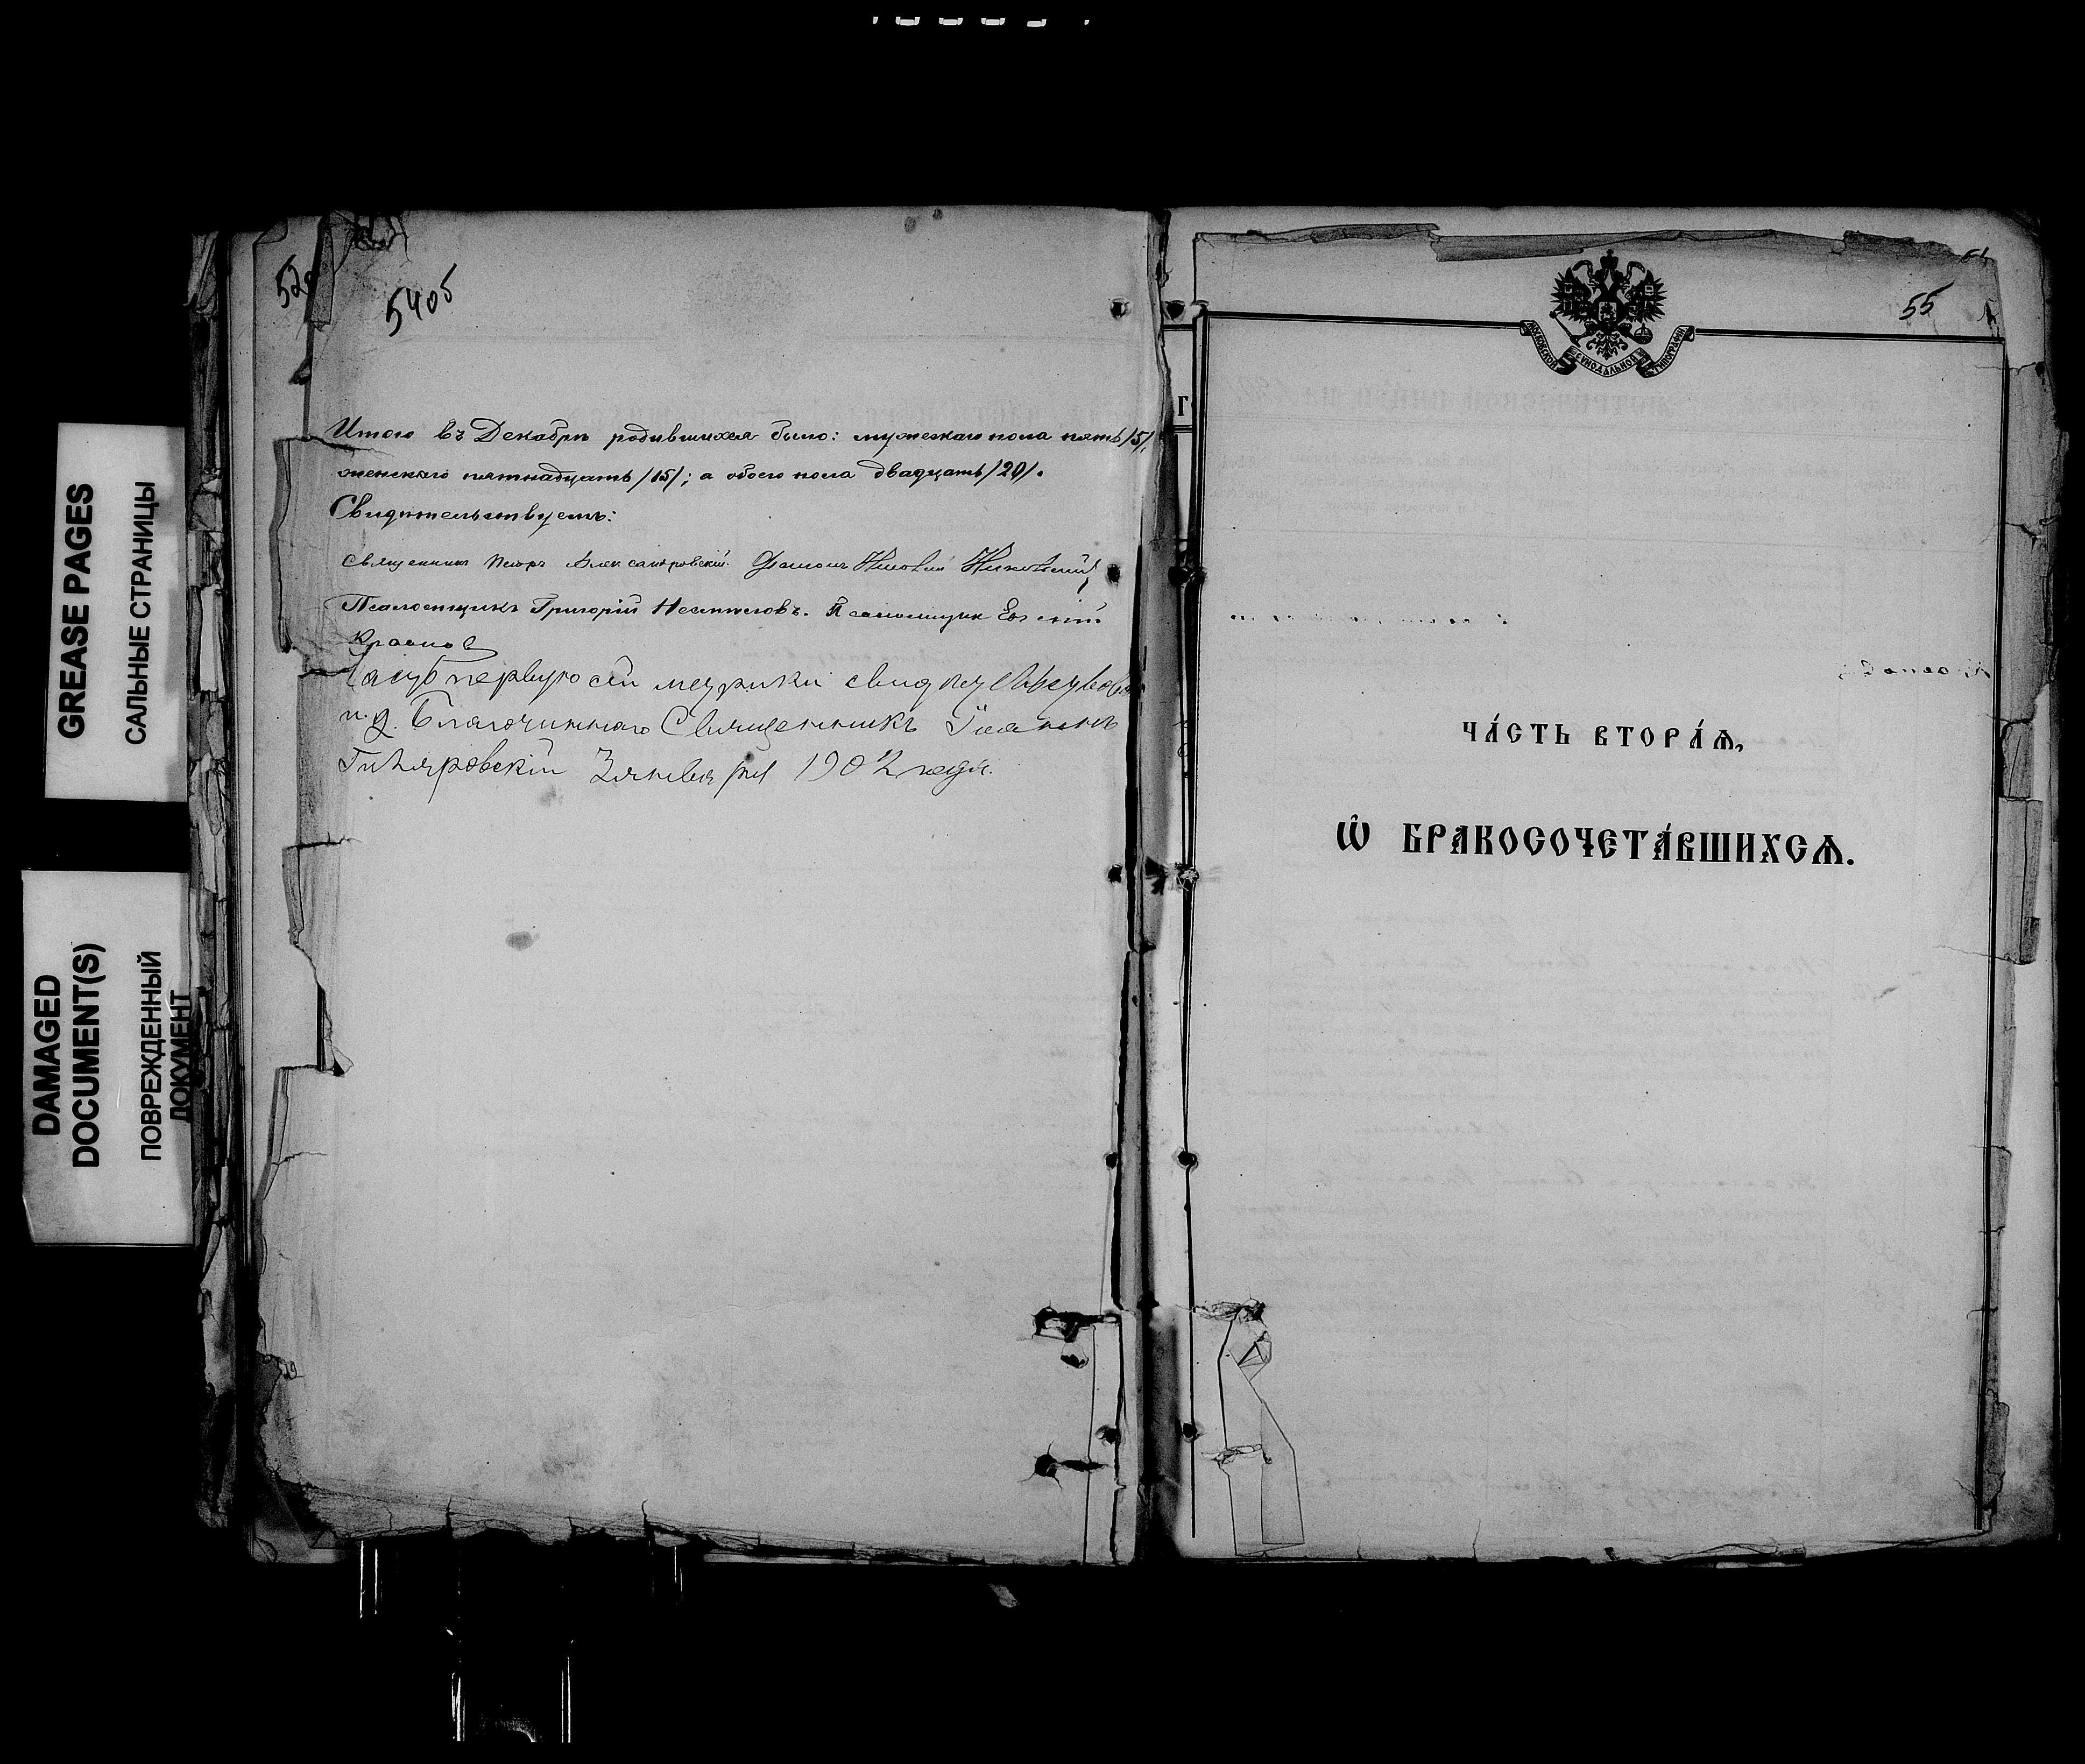 GREASE PAGES
САЛЬНЫЕ СТРАНИЦЫ
DAMAGED
DOCUMENT(S)
ПОВРЕЖДЕННЫЙ
ДОКУМЕНТ
52
54об
Итого въ Декабрѣ родившихся было: мужескаго пола пять /5/,
женскаго пятнадцать /15/; а обоего пола двадцать /20/.
Свидѣтельствуемъ:
Священникъ Петръ Александровскій. Діаконъ Никольскій
Псаломщикъ Григорій Неѣтеловъ. Псаломщик Евгеній
Краснов
Часть первую сей метрики свидѣтельствовалъ
и. д. Благочиннаго Священникъ Іоаннъ
Гиляровскій 3 января 1902 года.
55
МОСКОВСКОЙ СѴНОДАЛЬНОЙ ТИПОГРАФІИ
ЧА́СТЬ ВТОРА́Ѧ,
Ѽ БРАКОСОЧЕТА́ВШИХСѦ.